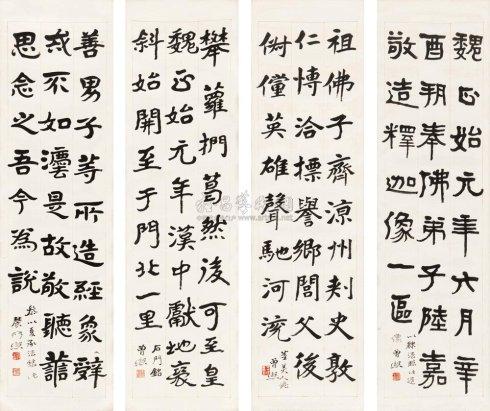 魏正始元年六月辛
酉朔奉佛弟子陸嘉
敬造釋迦像一區
曾熙
祖佛子齊涼州刺史敦
仁博洽摽譽鄉閭父後
倜儻英雄聲馳河沇
曾熙
攀蘿捫葛然後可至皇
魏正始元年漢中獻地褒
斜始開至于門北一里
石門銘
曾熙
善男子等所造經象辭
或不如灋是故敬聽諦
思念之吾今為說